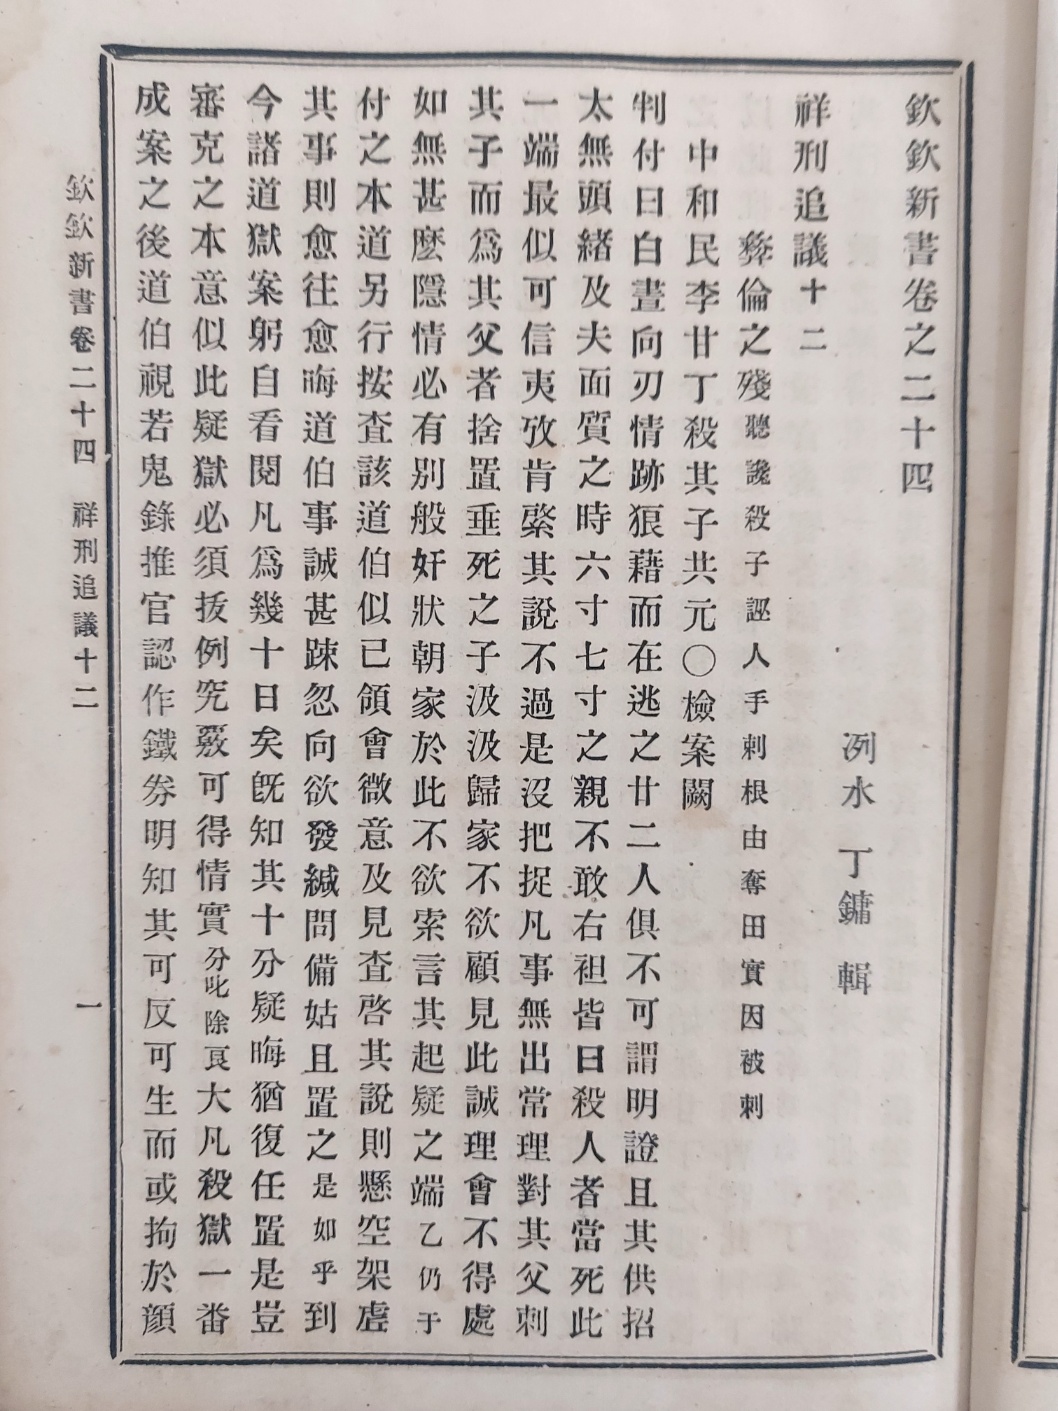 欽欽新書卷之二十四
冽水 丁鏞 輯
祥刑追議十二
彛倫之殘 聽讒殺子 誣人手刺 根由奪田 實因被刺
中和民李甘丁殺其子共元〇檢案闕
判付曰白晝向刃情跡狼藉而在逃之廿二人俱不可謂明證且其供招
太無頭緒及夫面質之時六寸七寸之親不敢右袒皆曰殺人者當死此
一端最似可信夷攷肯綮其說不過是沒把捉凡事無出常理對其父刺
其子而爲其父者捨置垂死之子汲汲歸家不欲顧見此誠理會不得處
如無甚麽隱情必有別般奸狀朝家於此不欲索言其起疑之端乙仍于
付之本道另行按查該道伯似已領會微意及見查啓其說則懸空架虛
其事則愈往愈晦道伯事誠甚踈忽向欲發緘問備姑且置之是如乎到
今諸道獄案躬自看閱凡爲幾十日矣旣知其十分疑晦猶復任置是豈
審克之本意似此疑獄必須拔例究覈可得情實分叱除良大凡殺獄一番
成案之後道伯視若鬼錄推官認作鐵券明知其可反可生而或拘於顔
欽欽新書卷二十四 祥刑追議十二 一